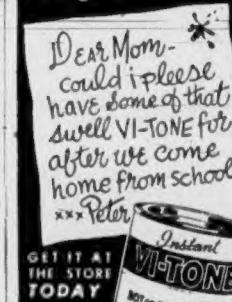 DEAR MOM-
could i pleese
have some of that
swell VI-TONE for
after we come
home from school
xxx Peter
GET IT AT
THE STORE
TODAY
Instant
VI-TONE